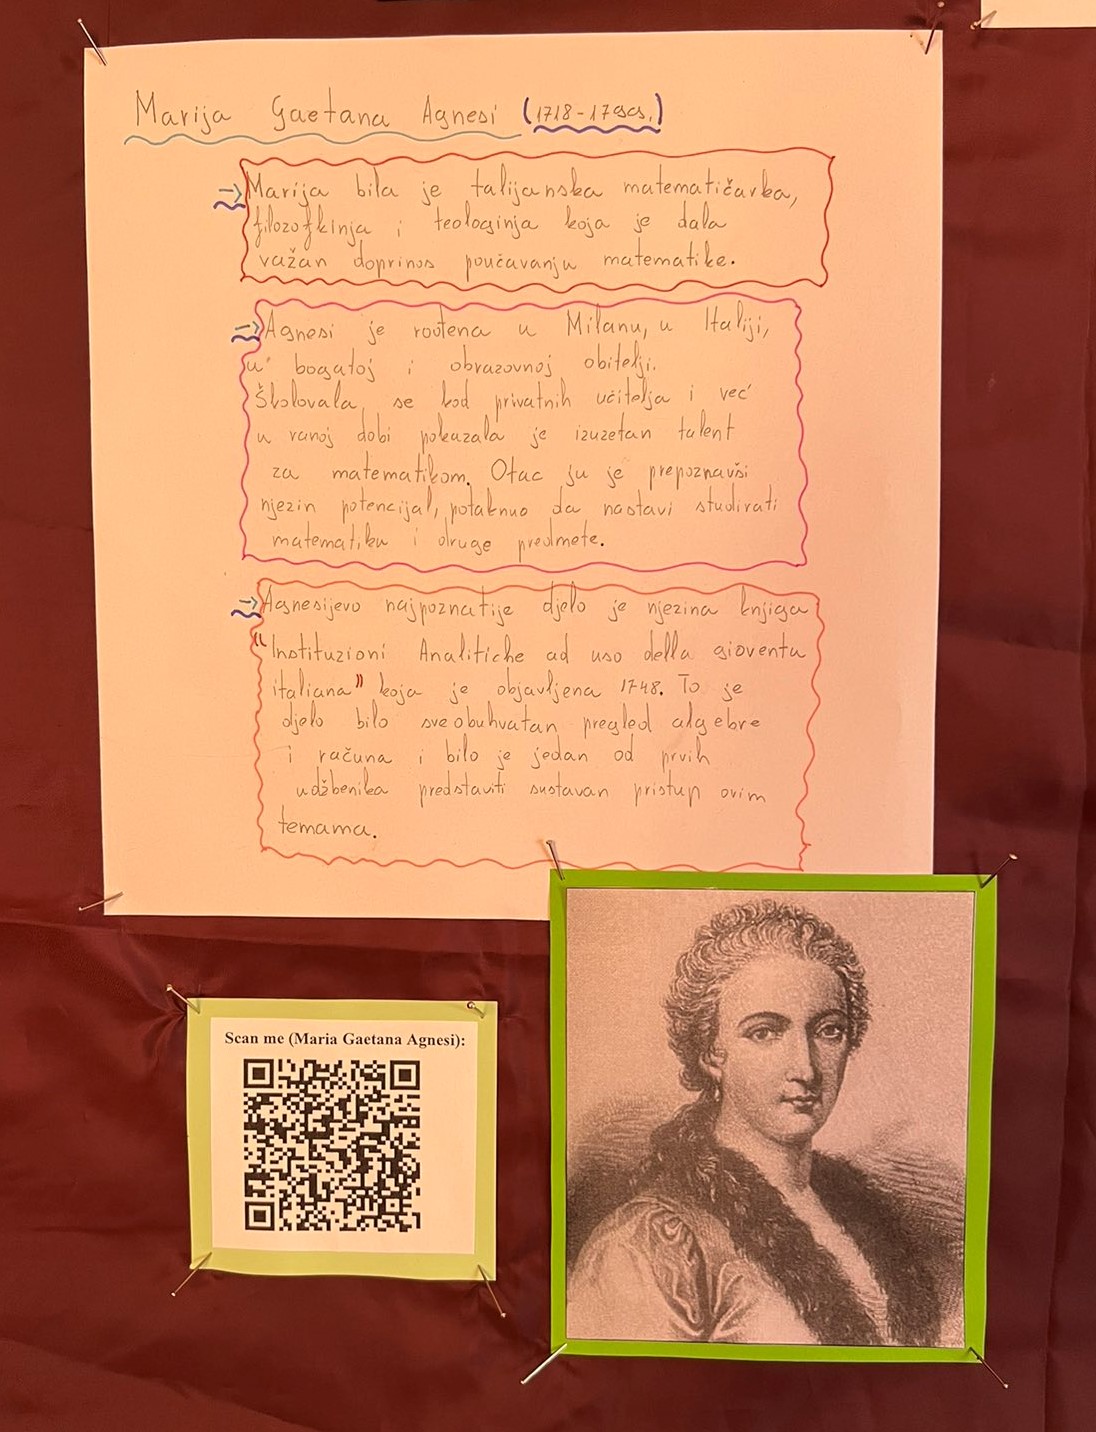 Marija Gaetana Agnesi (1718-1799.)
→ Marija bila je talijanska matematičarka,
filozofkinja i teologinja koja je dala
važan doprinos poučavanju matematike.
→ Agnesi je rođena u Milanu, u Italiji,
u bogatoj i obrazovnoj obitelji.
Školovala se kod privatnih učitelja i već
u ranoj dobi pokazala je izuzetan talent
za matematikom. Otac ju je prepoznavši
njezin potencijal, potaknuo da nastavi studirati
matematiku i druge predmete.
→ Agnesijevo najpoznatije djelo je njezina knjiga
"Instituzioni Analitiche ad uso della gioventu
italiana" koja je objavljena 1748. To je
djelo bilo sveobuhvatan pregled algebre
i računa i bilo je jedan od prvih
udžbenika predstaviti sustavan pristup ovim
temama.
Scan me (Maria Gaetana Agnesi):